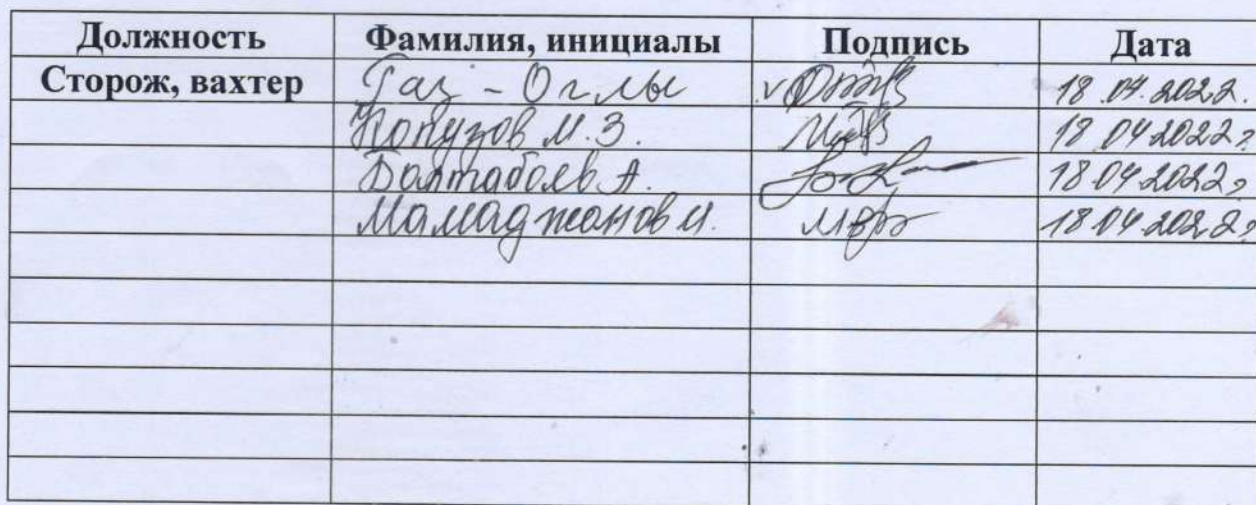 Должность Фамилия, инициалы Подпись Дата
Сторож, вахтер Газ - Оглы 18.04.2022.
М.З. 18.04.2022г
Балтабаев А. 18.04.2022г
Мамаджанов И. 18.04.2022г